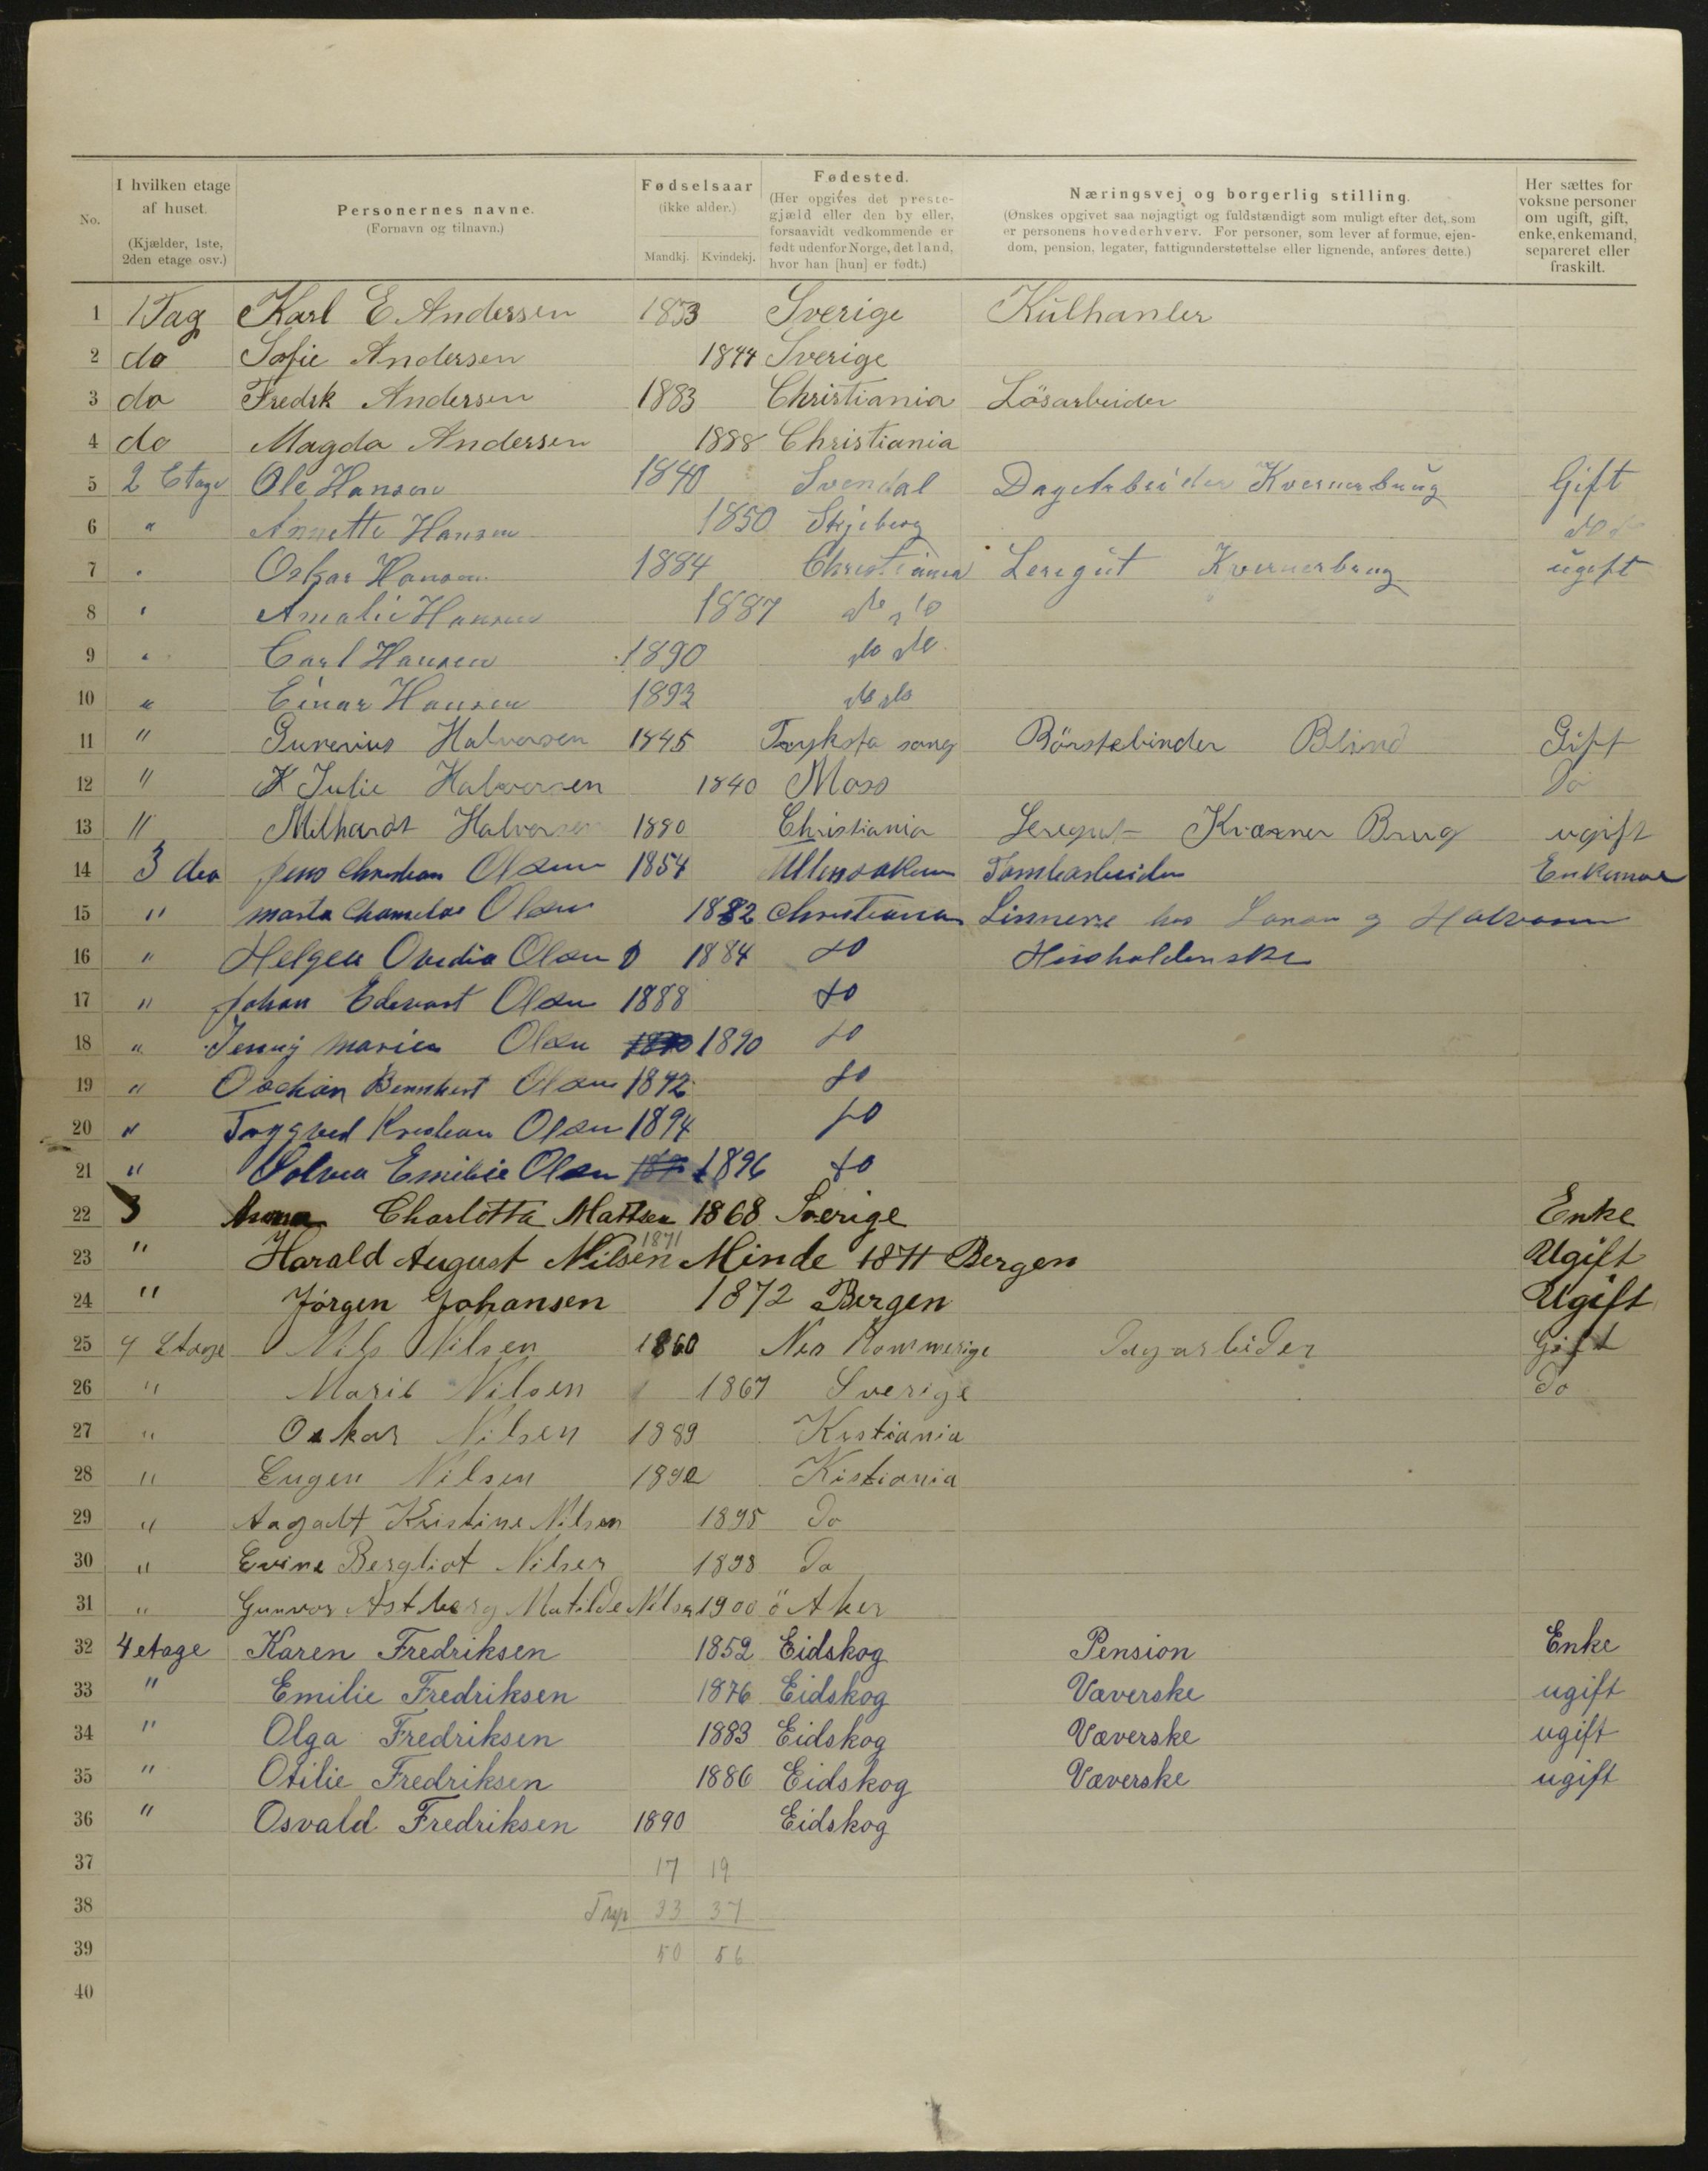 No.
I hvilken etage af huset. (Kjælder, 1ste, 2den etage osv.)
Personernes navne. (Fornavn og tilnavn.)
Fødselsaar (ikke alder.) Mandkj. Kvindekj.
Fødested. (Her opgives det prestegjæld eller den by eller, forsaavidt vedkommende er født udenfor Norge, det land, hvor han [hun] er født.)
Næringsvej og borgerlig stilling. (Ønskes opgivet saa nøjagtigt og fuldstændigt som muligt efter det, som er personens hovederhverv. For personer, som lever af formue, ejendom, pension, legater, fattigunderstøttelse eller lignende, anføres dette.)
Her sættes for voksne personer om ugift, gift, enke, enkemand, separeret eller fraskilt.
1 1 Tag Karl E Andersen 1853 Sverige Kulhanler
2 do Sofie Andersen 1844 Sverige
3 do Fredrk Andersen 1883 Christiania Lösarbeider
4 do Magda Andersen 1888 Christiania
5 2 Etage Ole Hansen 1840 Svendal DagArbeider Kvernerbrug Gift
6 " Annette Hansen 1850 Skjeberg do do
7 " Oskar Hansen 1884 Christiania Leregut Kvernerbrug ugift
8 " Amalie Hansen 1887 do do
9 " Carl Hansen 1890 do do
10 " Einar Hansen 1893 do do
11 " Surenius Halvorsen 1845 Tryksta sang Börstebinder Blind Gift
12 " K Julie Halvorsen 1840 Moss Do
13 " Milhardt Halvorsen 1880 Christiania Leregut Kværner Brug ugift
14 3 dea Jens Christian Olsen 1854 Ullensaken Tomtearbeider Enkeman
15 " Marta Olsen 1882 Christiania Linnerie hos Larsen g Halvorsen
16 " Helgea Ovedia Olsen 1884 do Husholderske
17 " Johan Edevart Olsen 1888 do
18 " Jenny Marien Olsen 1890 1890 do
19 " Oschar Bernhert Olsen 1892 do
20 " Tryggved Kristian Olsen 1894 do
21 " Solvea Emilie Olsen 189 1896 do
22 3 Anna Charlotta Mattsen 1868 Sverige Enke
23 " Harald August Nilsen Minde 1871 1871 Bergen Ugift
24 " Jörgen Johansen 1872 Bergen Ugift
25 4 Etage Nils Nilsen 1860 Nes Rommerige Dagarbider Gift
26 " Marie Nilsen 1867 Sverige Do
27 " Oskar Nilsen 1889 Kristiania
28 " Eugen Nilsen 1892 Kistiania
29 " Aagadt Kristine Nilsen 1895 Do
30 " Evine Bergliot Nilsen 1898 Do
31 " Gunvor Astberg Matilde Nilsen 1900 ö Aker
32 4 etage Karen Fredriksen 1852 Eidskog Pension Enke
33 " Emilie Fredriksen 1876 Eidskog Væverske ugift
34 " Olga Fredriksen 1883 Eidskog Væverske ugift
35 " Otilie Fredriksen 1886 Eidskog Væverske ugift
36 " Osvald Fredriksen 1890 Eidskog
37 17 19
38 Trsp 33 37
39 50 56
40